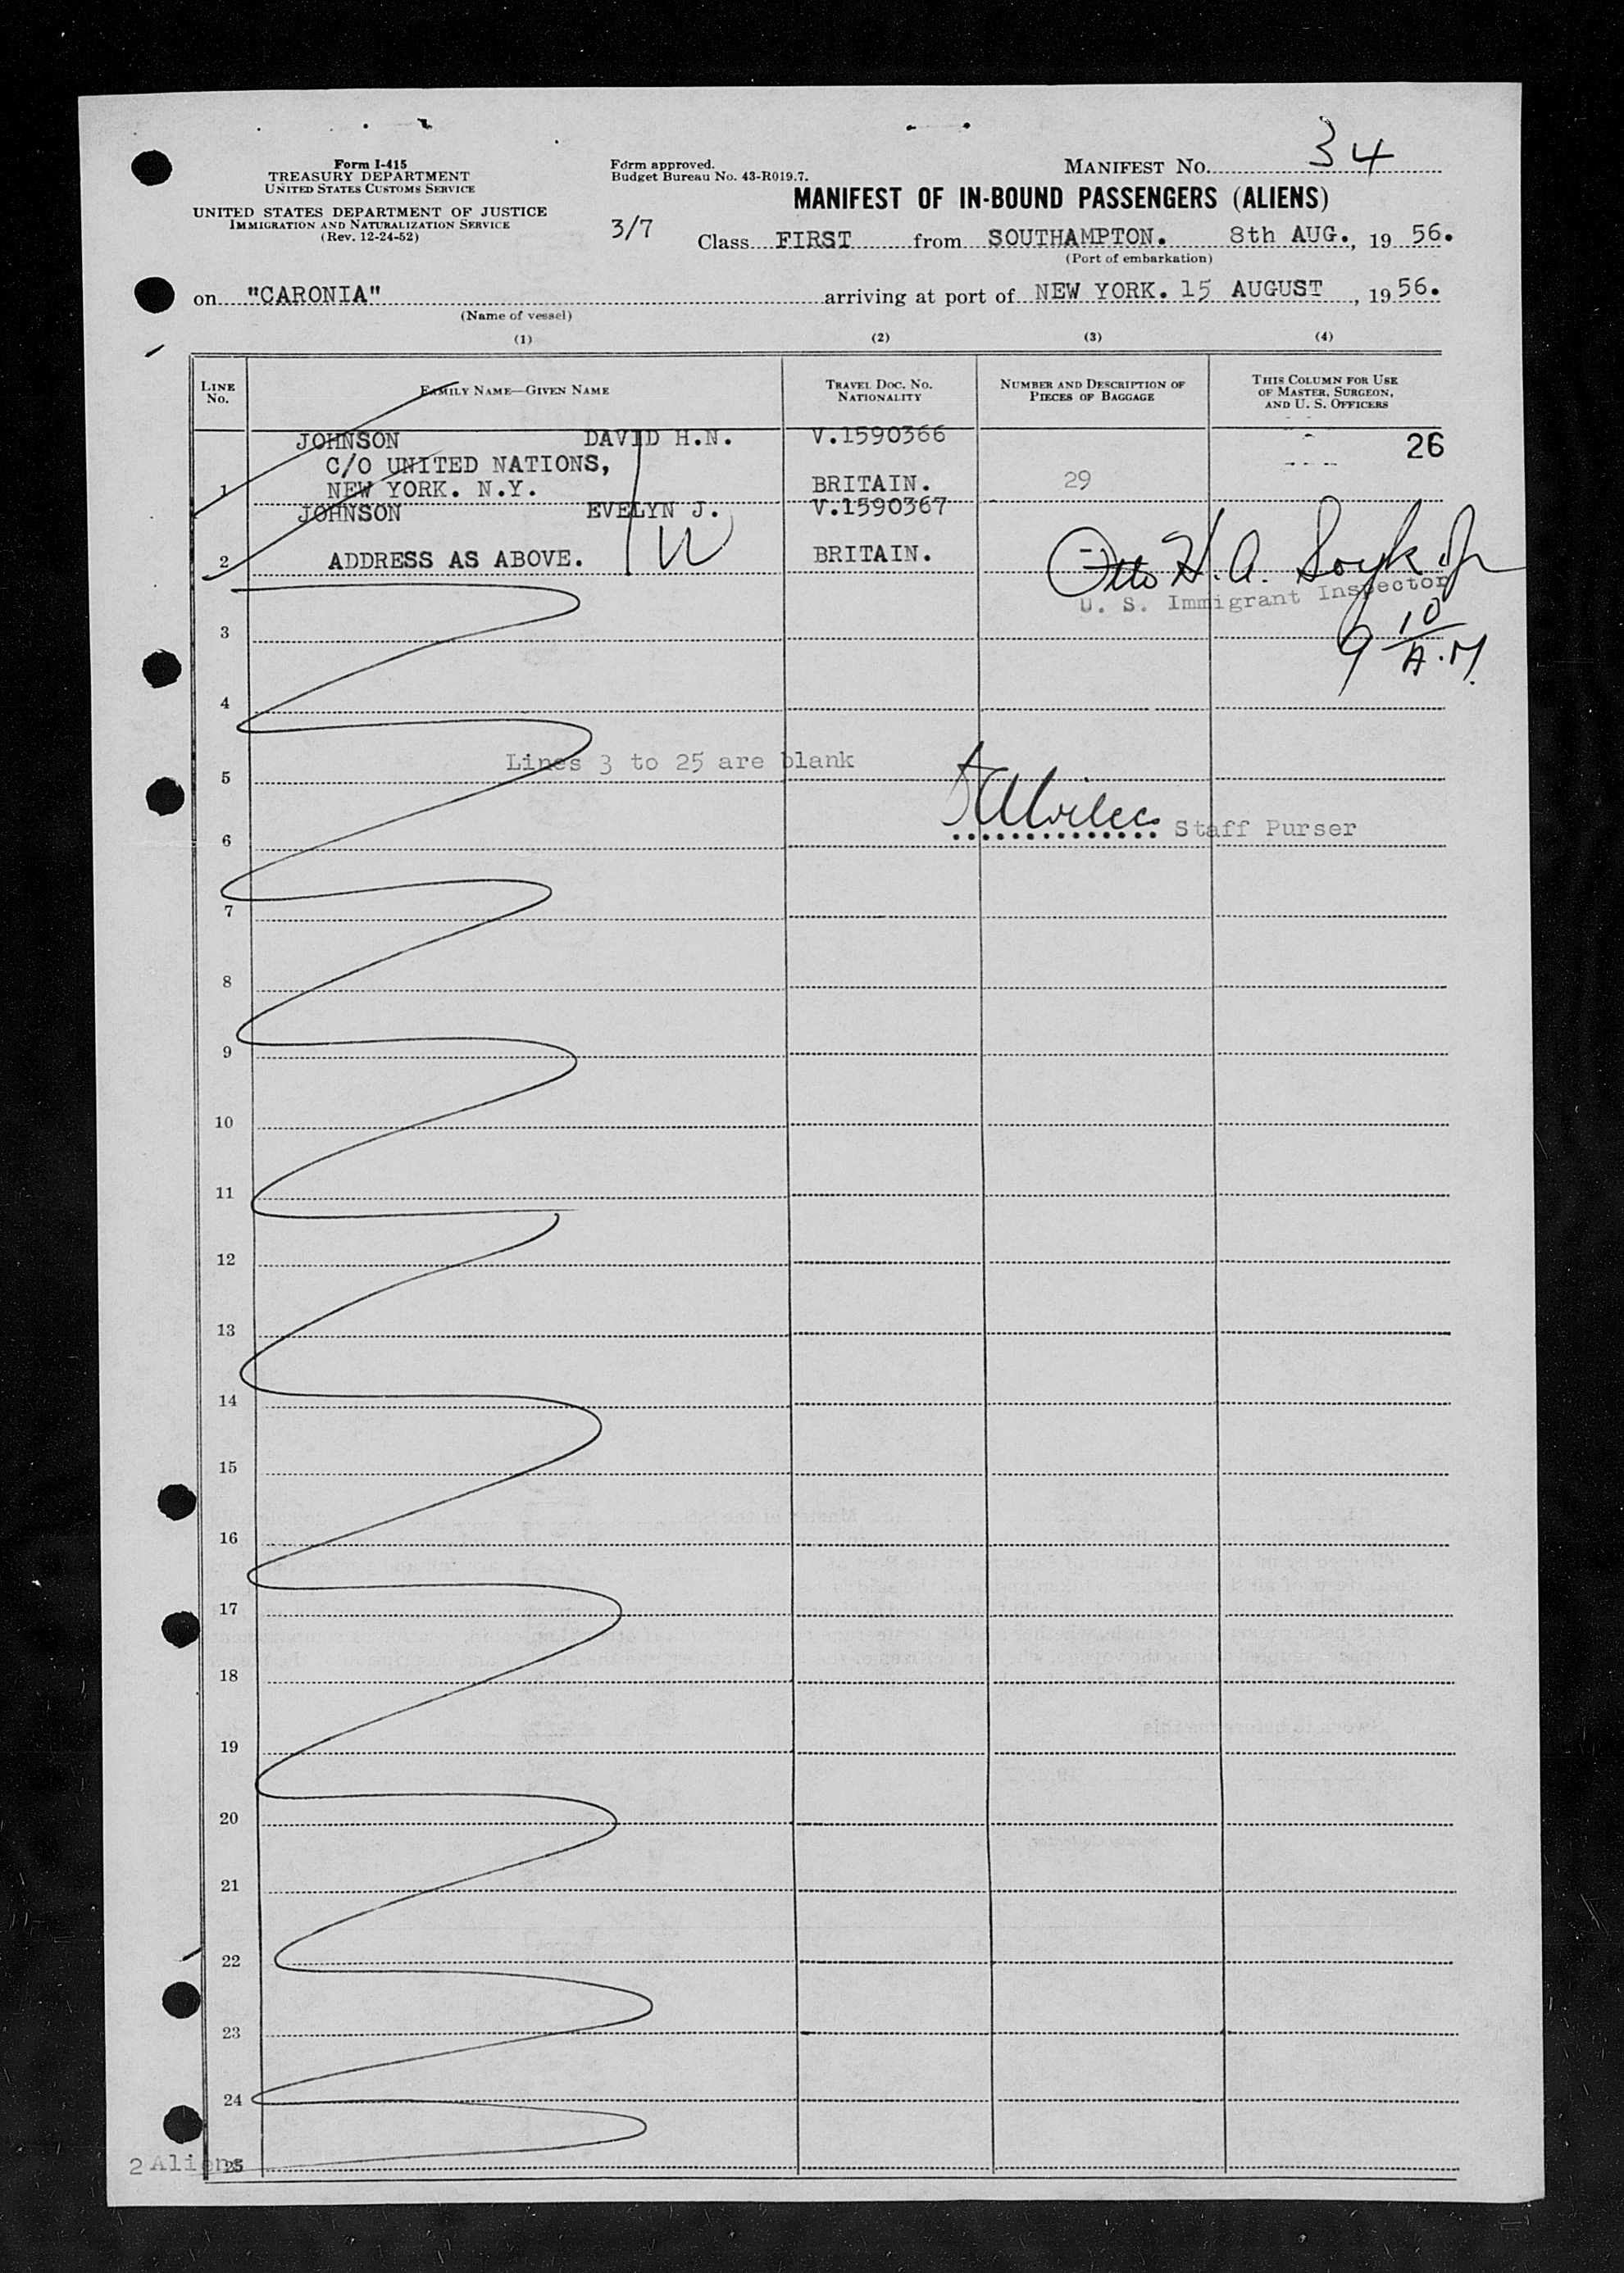 Form I-415
TREASURY DEPARTMENT
UNITED STATES CUSTOMS SERVICE
UNITED STATES DEPARTMENT OF JUSTICE
IMMIGRATION AND NATURALIZATION SERVICE
(Rev. 12-24-52)
Form approved.
Budget Bureau No. 43-R019.7.
MANIFEST No. 34
MANIFEST OF IN-BOUND PASSENGERS (ALIENS)
3/7 Class FIRST from SOUTHAMPTON. 8th AUG., 19 56.
(Port of embarkation)
on "CARONIA" arriving at port of NEW YORK. 15 AUGUST, 19 56.
(Name of vessel)
(1) (2) (3) (4)
LINE No. FAMILY NAME—GIVEN NAME TRAVEL DOC. No. NATIONALITY NUMBER AND DESCRIPTION OF PIECES OF BAGGAGE THIS COLUMN FOR USE OF MASTER, SURGEON, AND U. S. OFFICERS
JOHNSON DAVID H.N. V.1590366 26
C/O UNITED NATIONS,
1 NEW YORK. N.Y. BRITAIN. 29
JOHNSON EVELYN J. V.1590367
2 ADDRESS AS ABOVE. BRITAIN.
Otto H. A.
U. S. Immigrant Inspector
3
9 10 A.M.
4
Lines 3 to 25 are blank
5
Staff Purser
6
7
8
9
10
11
12
13
14
15
16
17
18
19
20
21
22
23
24
2 Aliens 25